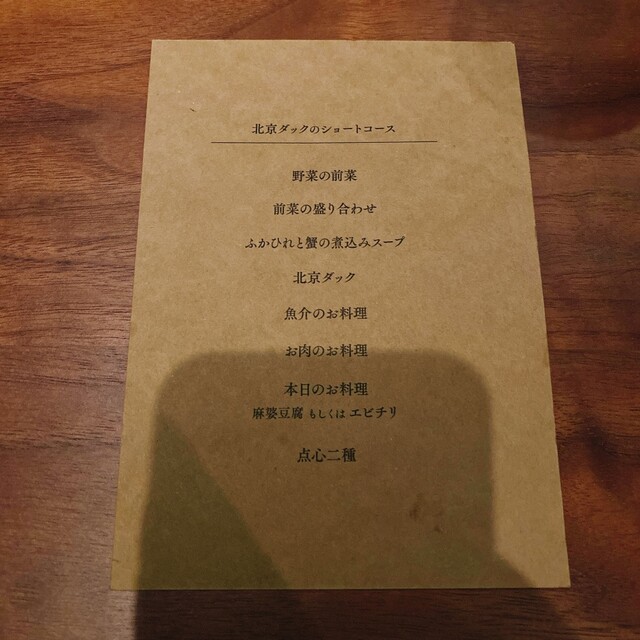 北京ダックのショートコース
野菜の前菜
前菜の盛り合わせ
ふかひれと蟹の煮込みスープ
北京ダック
魚介のお料理
お肉のお料理
本日のお料理
麻婆豆腐 もしくは エビチリ
点心二種